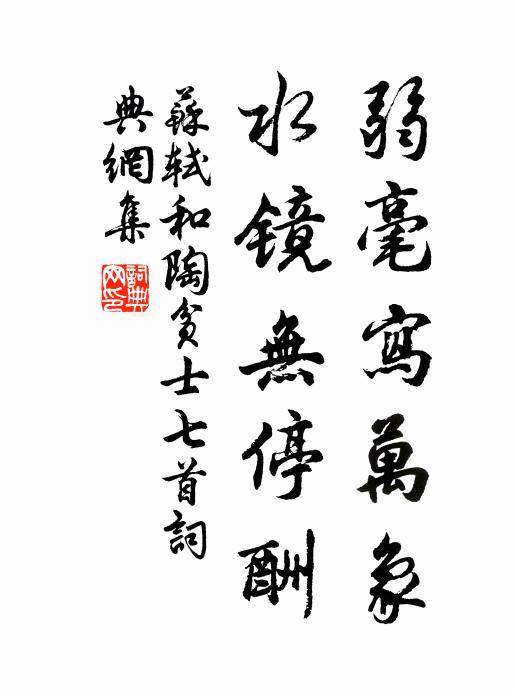 弱毫寫萬象
水鏡無停酬
蘇軾和陶貧士七首詞
典網集
詞典網印